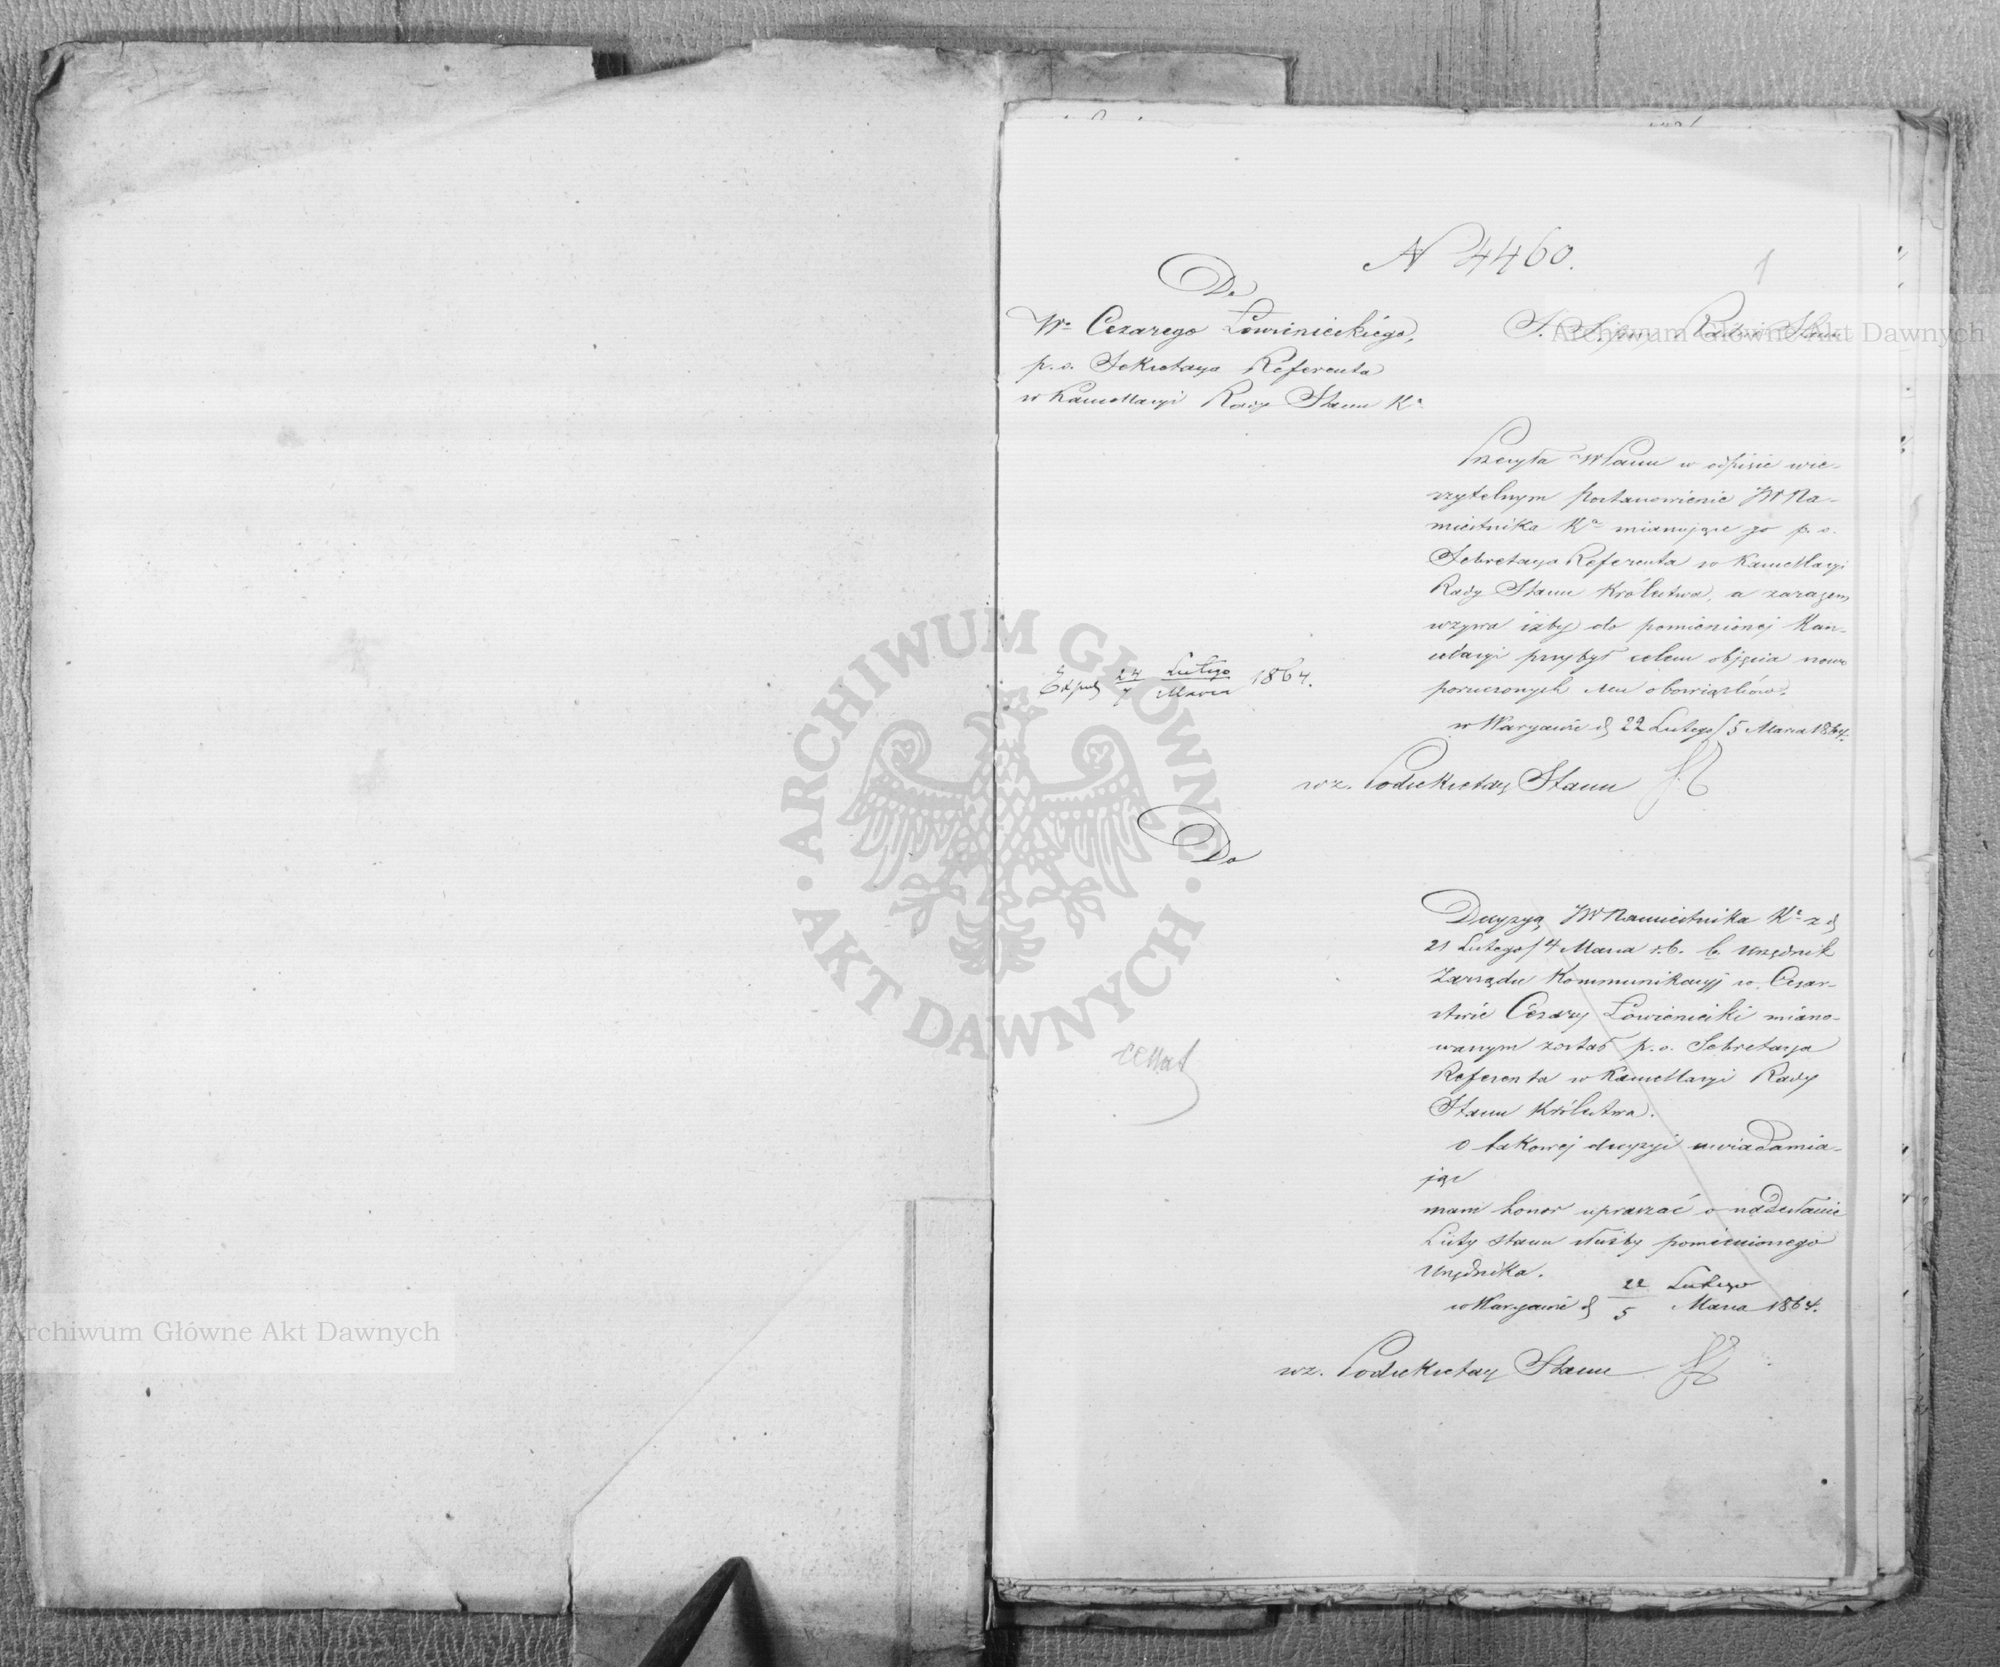 N 4460.
1
Do
Wo Cezarego Łowienieckiego,
p. o. Sekretarza Referenta
w Kancellaryi Rady Stanu Ka
Radca Stanu
Przesyła WPanu w odpisie wie-
rzytelnym postanowienie JW Na-
miestnika Ka mianujące go p. o.
Sekretarza Referenta w Kancellaryi
Rady Stanu Królestwa, a zarazem
wzywa iżby do pomienionej Kan-
celaryi przybył celem objęcia nowo
poruczonych Mu obowiązków.
w Warszawie d 22 Lutego/5 Marca 1864.
24 Lutego
7 Marca 1864.
wz. Podsekretarz Stanu
Do
Decyzyą JW Namiestnika Ka z d
21 Lutego/4 Marca r. b. b. Urzędnik
Zarządu Kommunikacyj w Cesar-
stwie Cezary Łowieniecki miano-
wanym został p. o. Sekretarza
Referenta w Kancellaryi Rady
Stanu Królestwa.
O takowej decyzyi uwiadamia-
jąc
mam honor upraszać o nadesłanie
Listy stanu służby pomienionego
Urzędnika.
w Warszawie d 22 Lutego
5 Marca 1864.
wz. Podsekretarz Stanu
ARCHIWUM GŁÓWNE AKT DAWNYCH
Archiwum Główne Akt Dawnych
Archiwum Główne Akt Dawnych